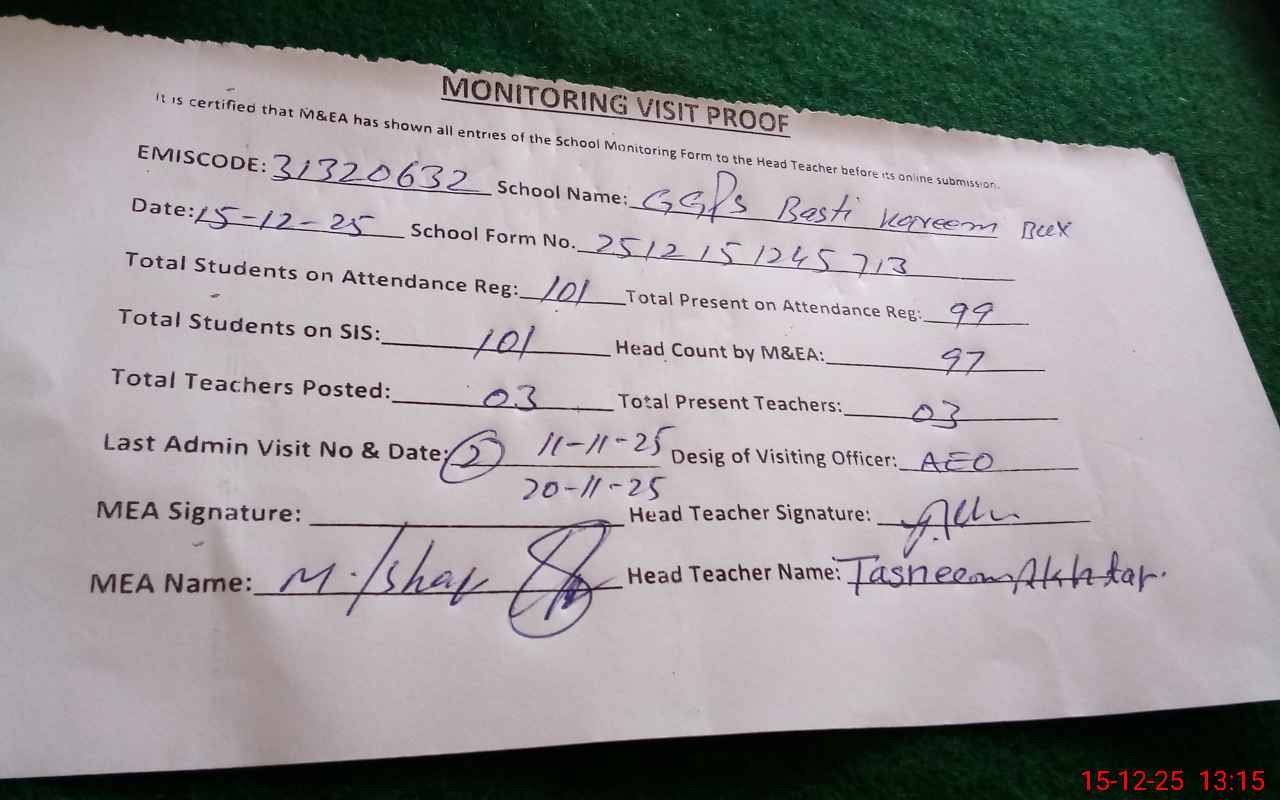 MONITORING VISIT PROOF
It is certified that M&EA has shown all entries of the School Monitoring Form to the Head Teacher before its online submission.
EMISCODE: 31320632 School Name: GGPS Basti Kareem Bux
Date: 15-12-25 School Form No. 2512151245713
Total Students on Attendance Reg: 101 Total Present on Attendance Reg: 99
Total Students on SIS: 101 Head Count by M&EA: 97
Total Teachers Posted: 03 Total Present Teachers: 03
Last Admin Visit No & Date: 2 11-11-25 Desig of Visiting Officer: AEO
20-11-25
MEA Signature: Head Teacher Signature:
MEA Name: M. Ishaq Head Teacher Name: Tasneem Akhtar.
15-12-25 13:15